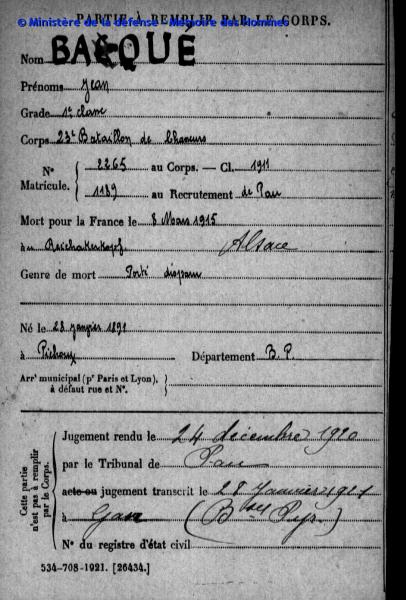 PARTIE À REMPLIR PAR LE CORPS.
© Ministère de la défense - Mémoire des Hommes
Nom BACQUÉ
Prénoms Jean
Grade 1re classe
Corps 23e Bataillon de Chasseurs
N° Matricule. { 2265 au Corps. — Cl. 1911
1189 au Recrutement de Pau
Mort pour la France le 8 Mars 1915
à au Reichakerkopf Alsace
Genre de mort Porté disparu
Né le 28 janvier 1891
à Département B. P.
Arrt municipal (pr Paris et Lyon), à défaut rue et N°. }
Cette partie n'est pas à remplir par le Corps.
Jugement rendu le 24 décembre 1920
par le Tribunal de Pau
acte ou jugement transcrit le 28 Janvier 1921
à Gan (Bses Pyr.)
N° du registre d'état civil
534-708-1921. [26434.]